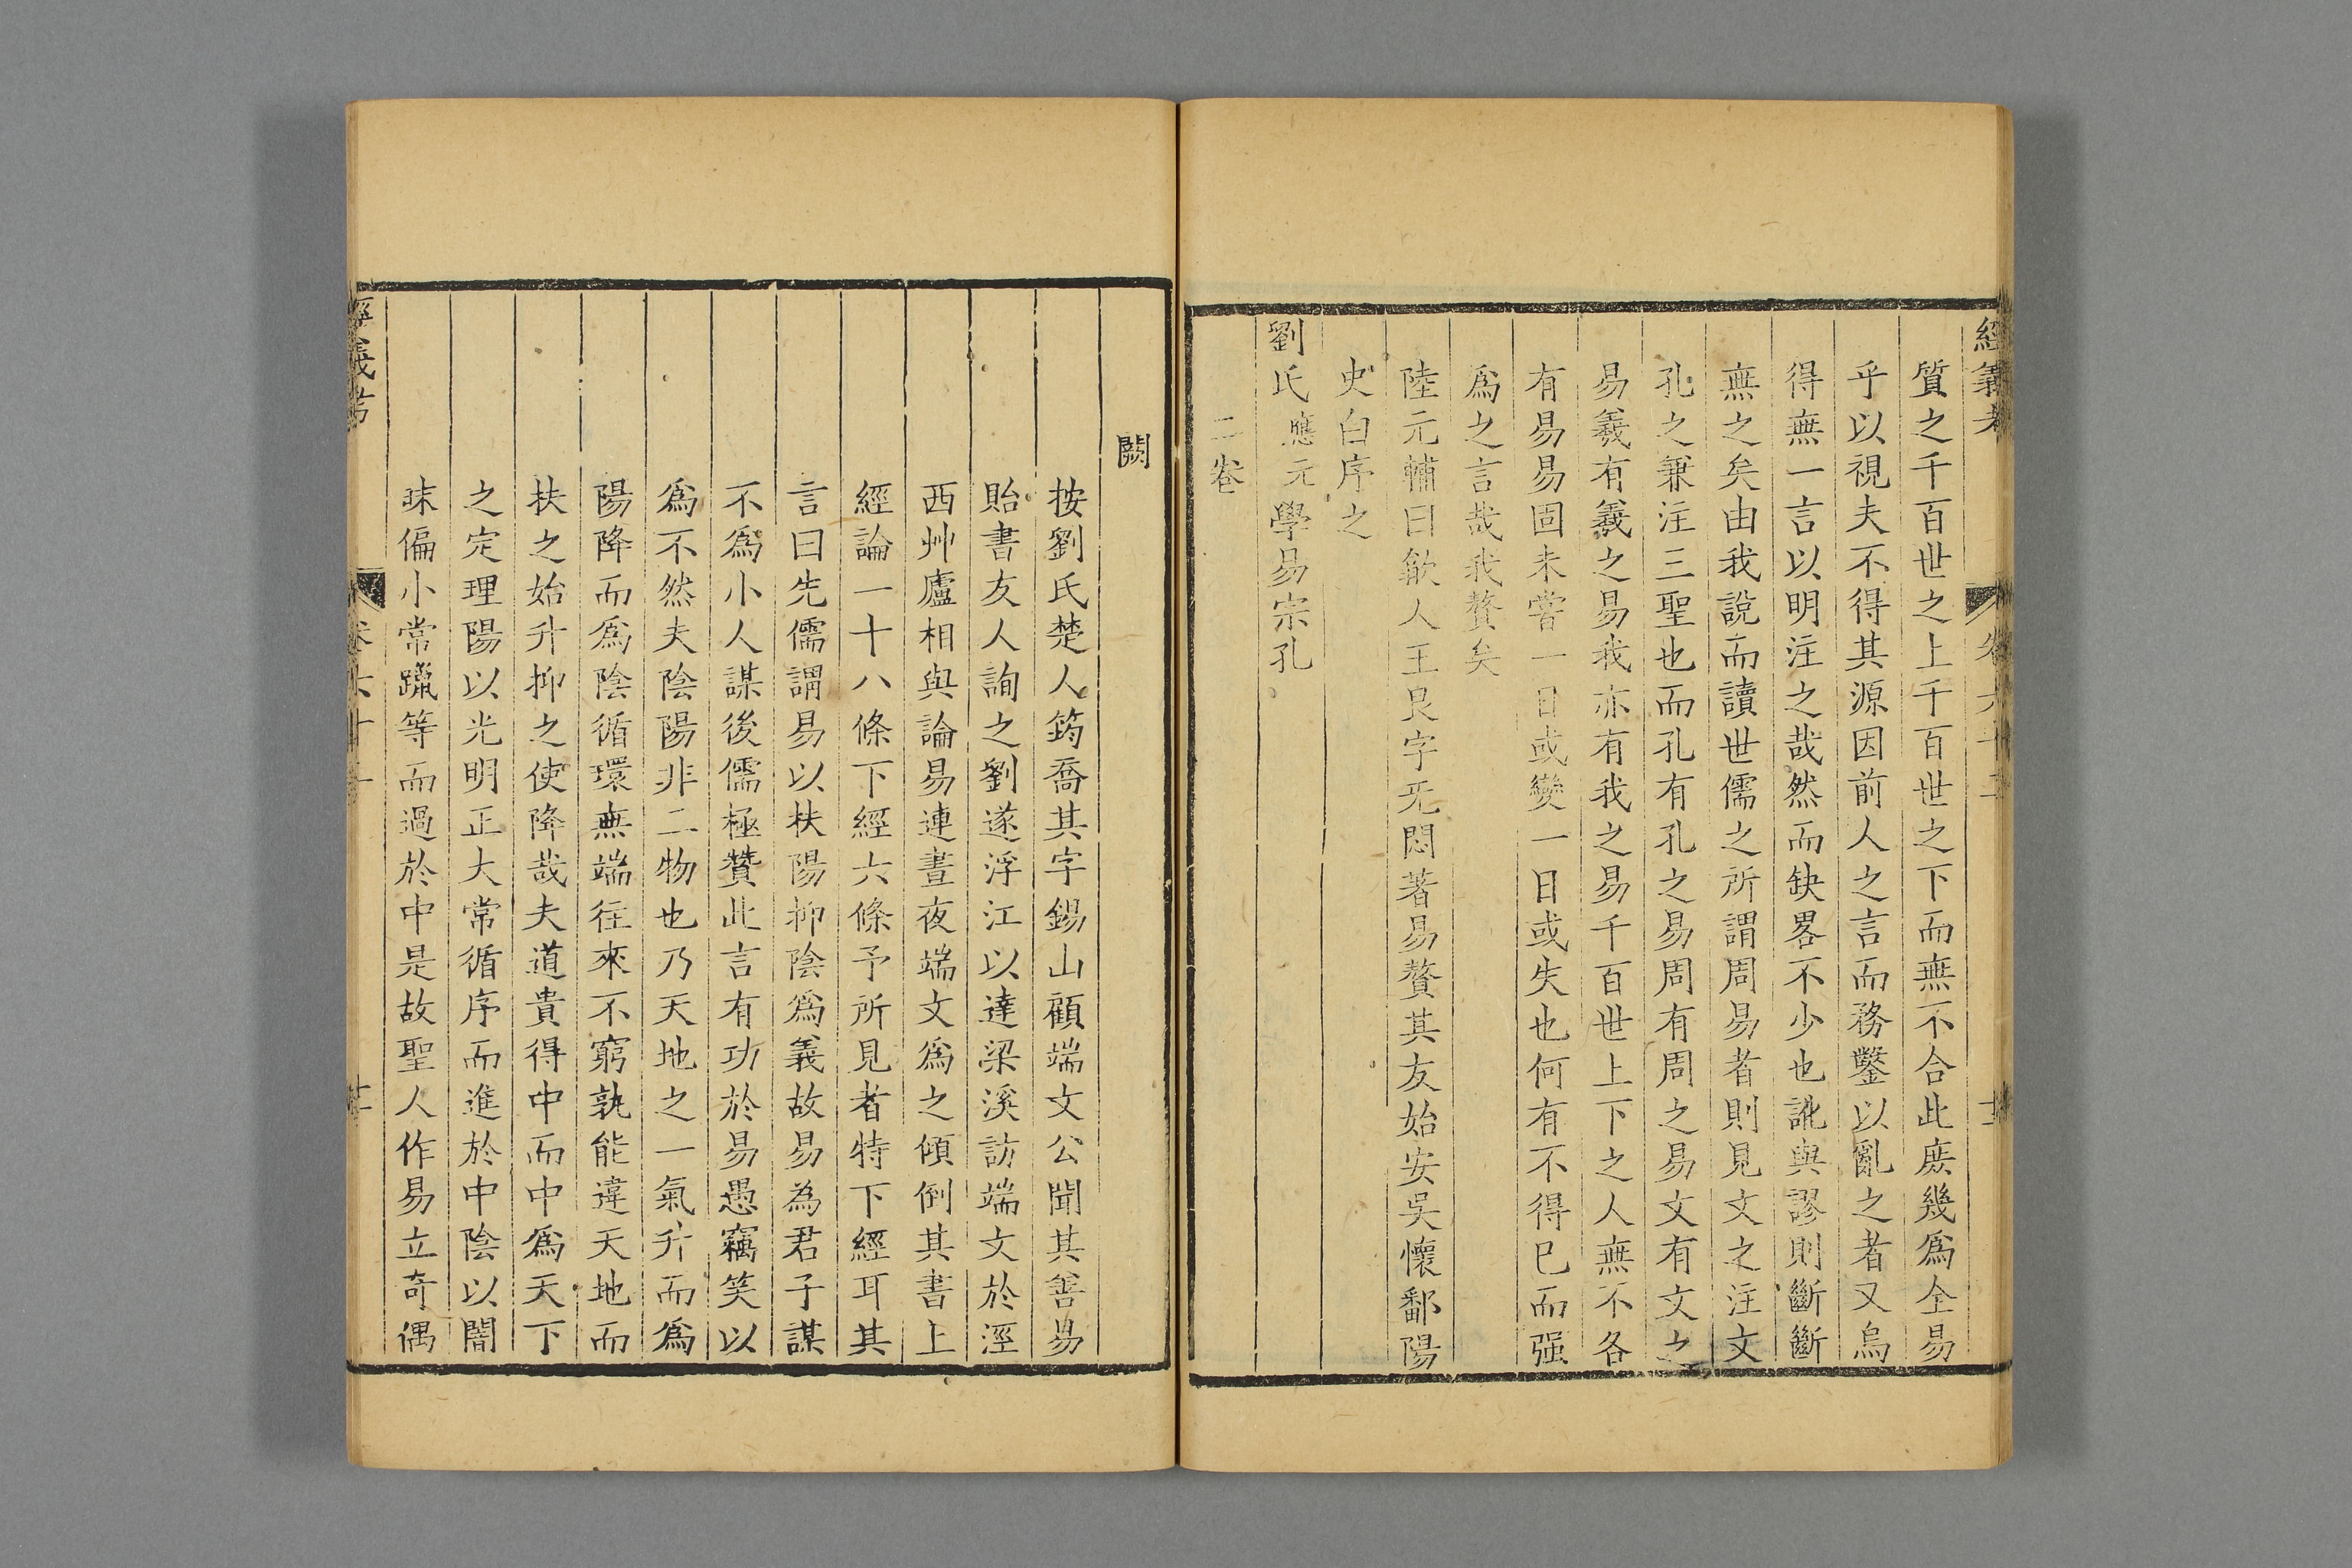 經義考
卷六十二
質之千百世之上千百世之下而無不合此庶幾爲全易
乎以視夫不得其源因前人之言而務鑿以亂之者又烏
得無一言以明注之哉然而缺畧不少也訛與謬則斷斷
無之矣由我說而讀世儒之所謂周易者則見文之注文
孔之兼注三聖也而孔有孔之易周有周之易文有文之
易羲有羲之易我亦有我之易千百世上下之人無不各
有易易固未嘗一日或變一日或失也何有不得已而强
爲之言哉我贅矣
陸元輔曰歙人王艮字旡悶著易贅其友始安吳懷鄱陽
史白序之
劉氏應元學易宗孔
二卷
闕
按劉氏楚人筠喬其字錫山顧端文公聞其善易
貽書友人詢之劉遂浮江以達梁溪訪端文於涇
西艸廬相與論易連晝夜端文爲之傾倒其書上
經論一十八條下經六條予所見者特下經耳其
言曰先儒謂易以扶陽抑陰爲義故易為君子謀
不爲小人謀後儒極贊此言有功於易愚竊笑以
爲不然夫陰陽非二物也乃天地之一氣升而爲
陽降而爲陰循環無端往來不窮孰能違天地而
扶之始升抑之使降哉夫道貴得中而中爲天下
之定理陽以光明正大常循序而進於中陰以闇
昧偏小常躐等而過於中是故聖人作易立奇偶
經義考